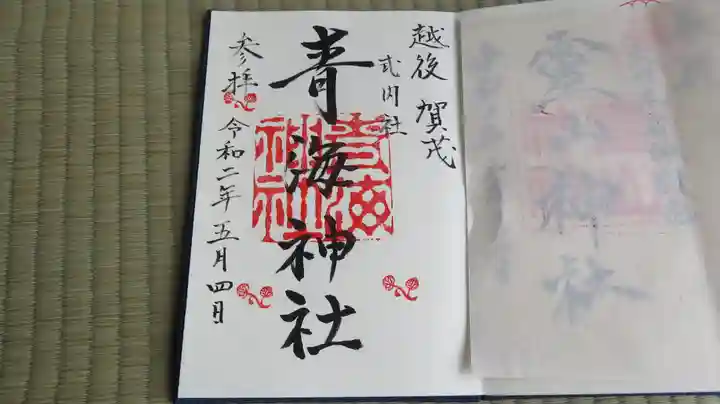 越後 賀茂
式内社
青海神社
青海神社
参拝
令和二年五月四日
神社